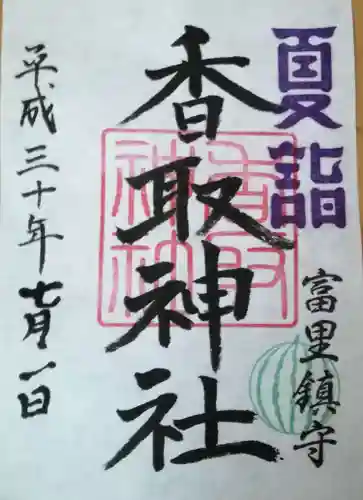 夏詣
富里鎮守
香取神社
香取神社
平成三十年七月一日